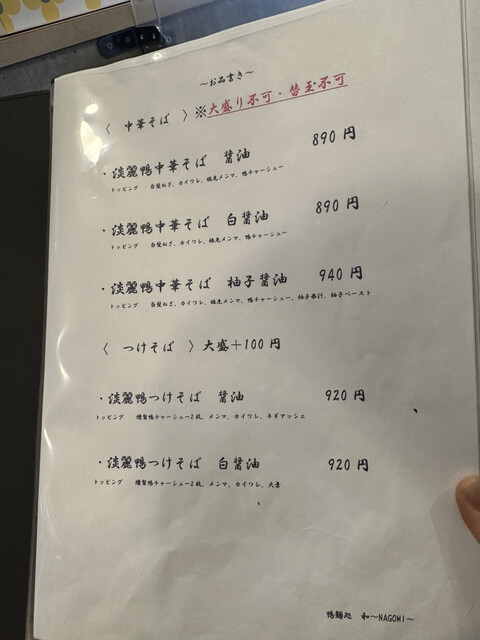 ～お品書き～
〈 中華そば 〉※大盛り不可・替玉不可
・淡麗鴨中華そば 醤油 890円
トッピング 白髪ねぎ、カイワレ、穂先メンマ、鴨チャーシュー
・淡麗鴨中華そば 白醤油 890円
トッピング 白髪ねぎ、カイワレ、穂先メンマ、鴨チャーシュー
・淡麗鴨中華そば 柚子醤油 940円
トッピング 白髪ねぎ、カイワレ、穂先メンマ、鴨チャーシュー、柚子果汁、柚子ペースト
〈 つけそば 〉大盛＋100円
・淡麗鴨つけそば 醤油 920円
トッピング 燻製鴨チャーシュー2枚、メンマ、カイワレ、ネギアッシェ
・淡麗鴨つけそば 白醤油 920円
トッピング 燻製鴨チャーシュー2枚、メンマ、カイワレ、大葉
鴨麺処 和～NAGOMI～